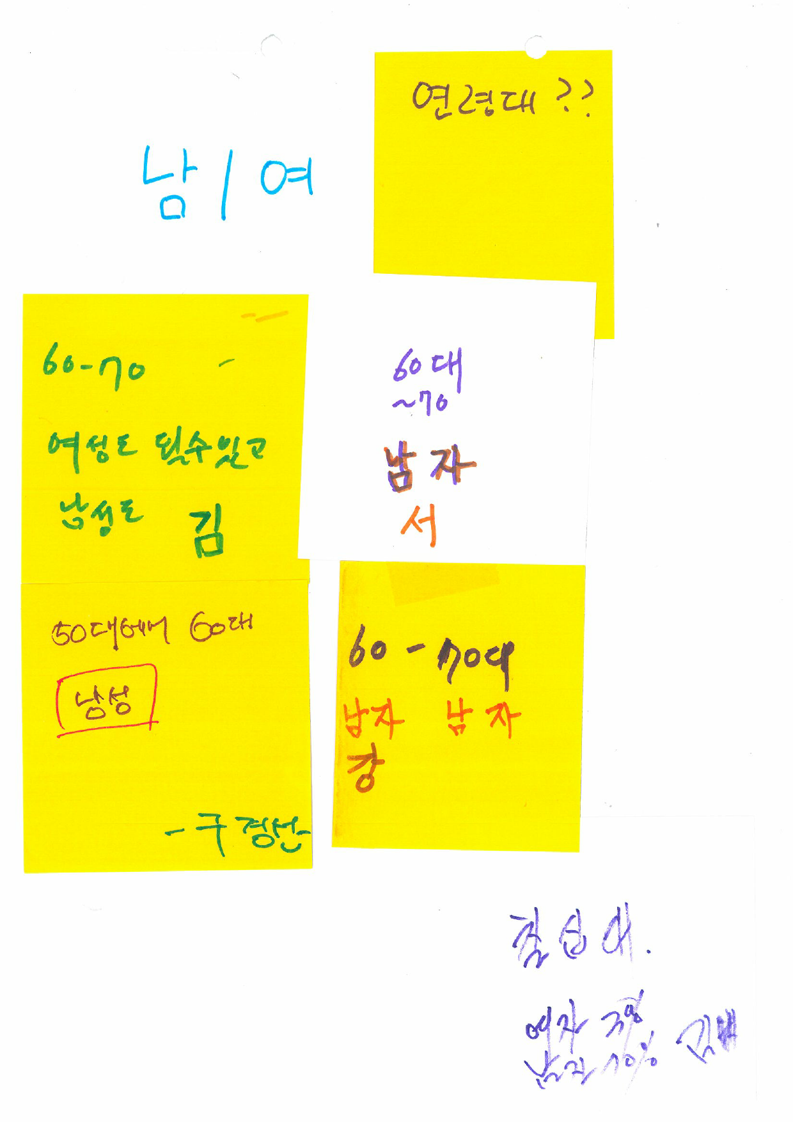 연령대 ??
남 / 여
60-70
여성도 될수있고
남성도 김
60대
~70
남자
서
50대에서 60대
남성
- 구경선 -
60 - 70대
남자 남자
강
칠십대.
여자
남자 70%